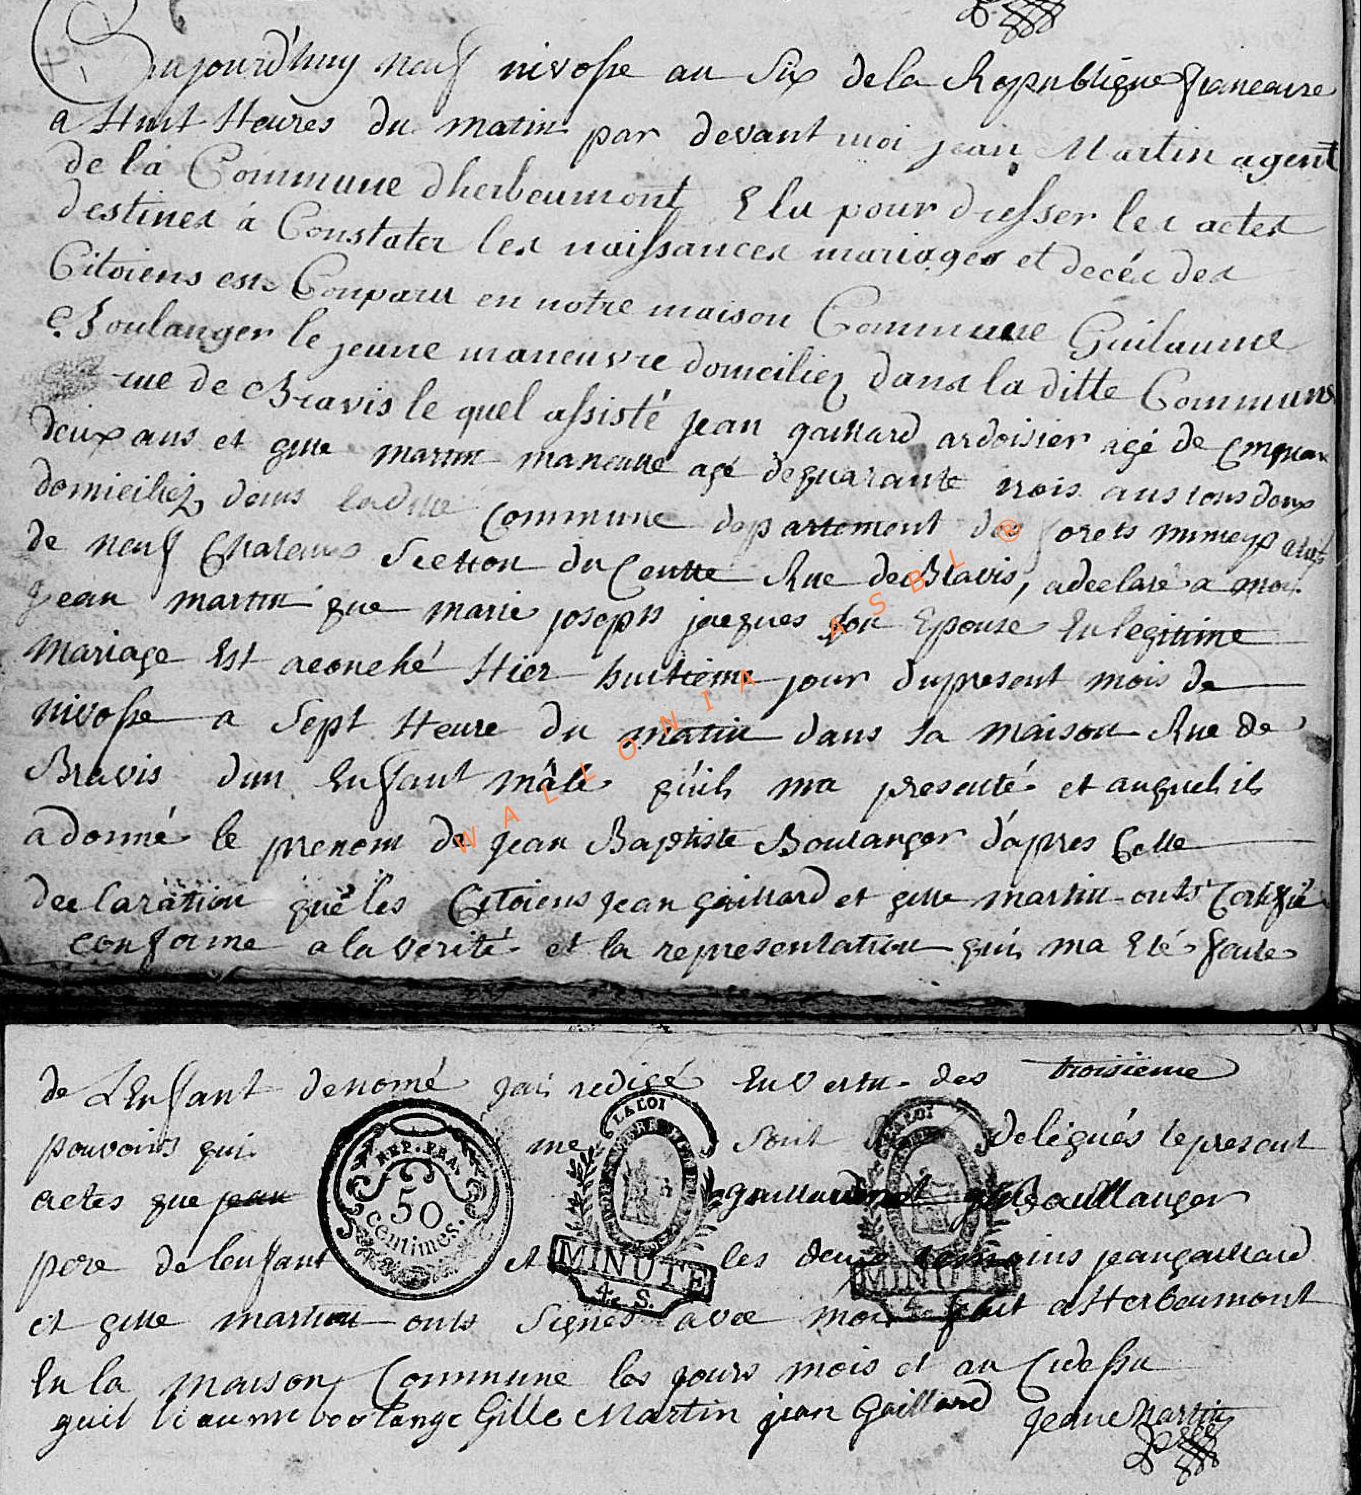 Aujourd'huy neuf nivosse an Six de la Republique francaise
a Huit Heures du matin par devant moi jean Martin agent
de la Commune dherbeumont Elu pour dresser les actes
destines à Constater les naissances mariages et decéc des
Citoiens est Comparu en notre maison Commune Guilaume
Boulanger le jeune maneuvre domiciliez dans la ditte Commune
rue de Bravis le quel assisté jean gaillard ardoisier agé de cinquan
deux ans et gille martin maneuvre agé de quarante trois ans tous deux
domiciliez dans laditte Commune departement des forets
de neuf Chateaux Section du Centre Rue de Bravis, a declaré a moi
jean martin que marie joseph jacques son Epouse En legitime
mariage Est acouché Hier huitieme jour du present mois de
nivosse a Sept Heure du matin dans sa maison Rue de
Bravis dun Enfant mâle quils ma presenté et auquel ils
a donné le prenom de jean Baptiste Boulanger d'apres Cette
declaration que les Citoiens jean gaillard et gille martin onts Certifié
conforme a la verité et la representation qui ma Eté faite
de L'Enfant denomé jai redigé En vertu des troisieme
pouvoirs qui me sont delegués le present
actes que jean gaillard et Boullanger
pere de lenfant et les deux temoins jean gaillard
et gille martin onts Signés avec moi fait a Herbeumont
En la maison Commune les jours mois et an Cidessu
guilliaumme boulange Gille Martin jean Gaillard jean Martin
REP. FRA.
50
centimes.
LA LOI
MINUTE
4e S.
LA LOI
MINUTE
WALLONIA ASBL ®